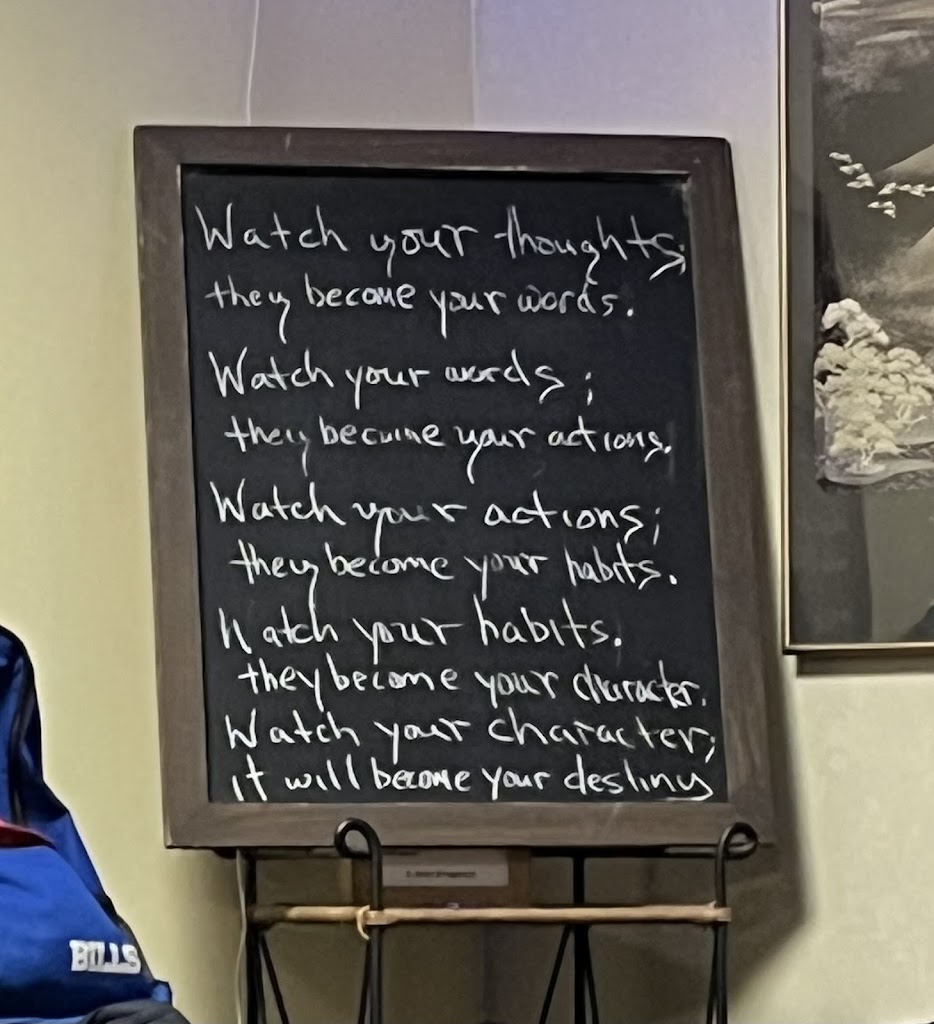 Watch your thoughts;
they become your words.
Watch your words;
they become your actions.
Watch your actions;
they become your habits.
Watch your habits.
they become your character.
Watch your character;
it will become your destiny
BILLS